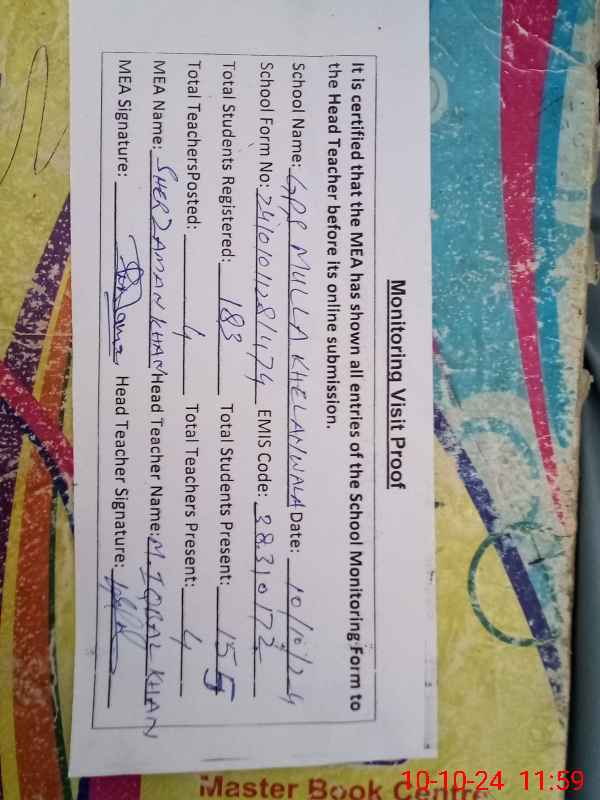 Monitoring Visit Proof
It is certified that the MEA has shown all entries of the School Monitoring Form to
the Head Teacher before its online submission.
School Name: GPS MULLA KHELANWALA Date: 10/10/24
School Form No: 24101012811474 EMIS Code: 38310172
Total Students Registered: 183 Total Students Present: 155
Total TeachersPosted: 4 Total Teachers Present: 4
MEA Name: SHERZAMAN KHAN Head Teacher Name: M. IQBAL KHAN
MEA Signature: Head Teacher Signature:
Master Book Centre
10-10-24 11:59